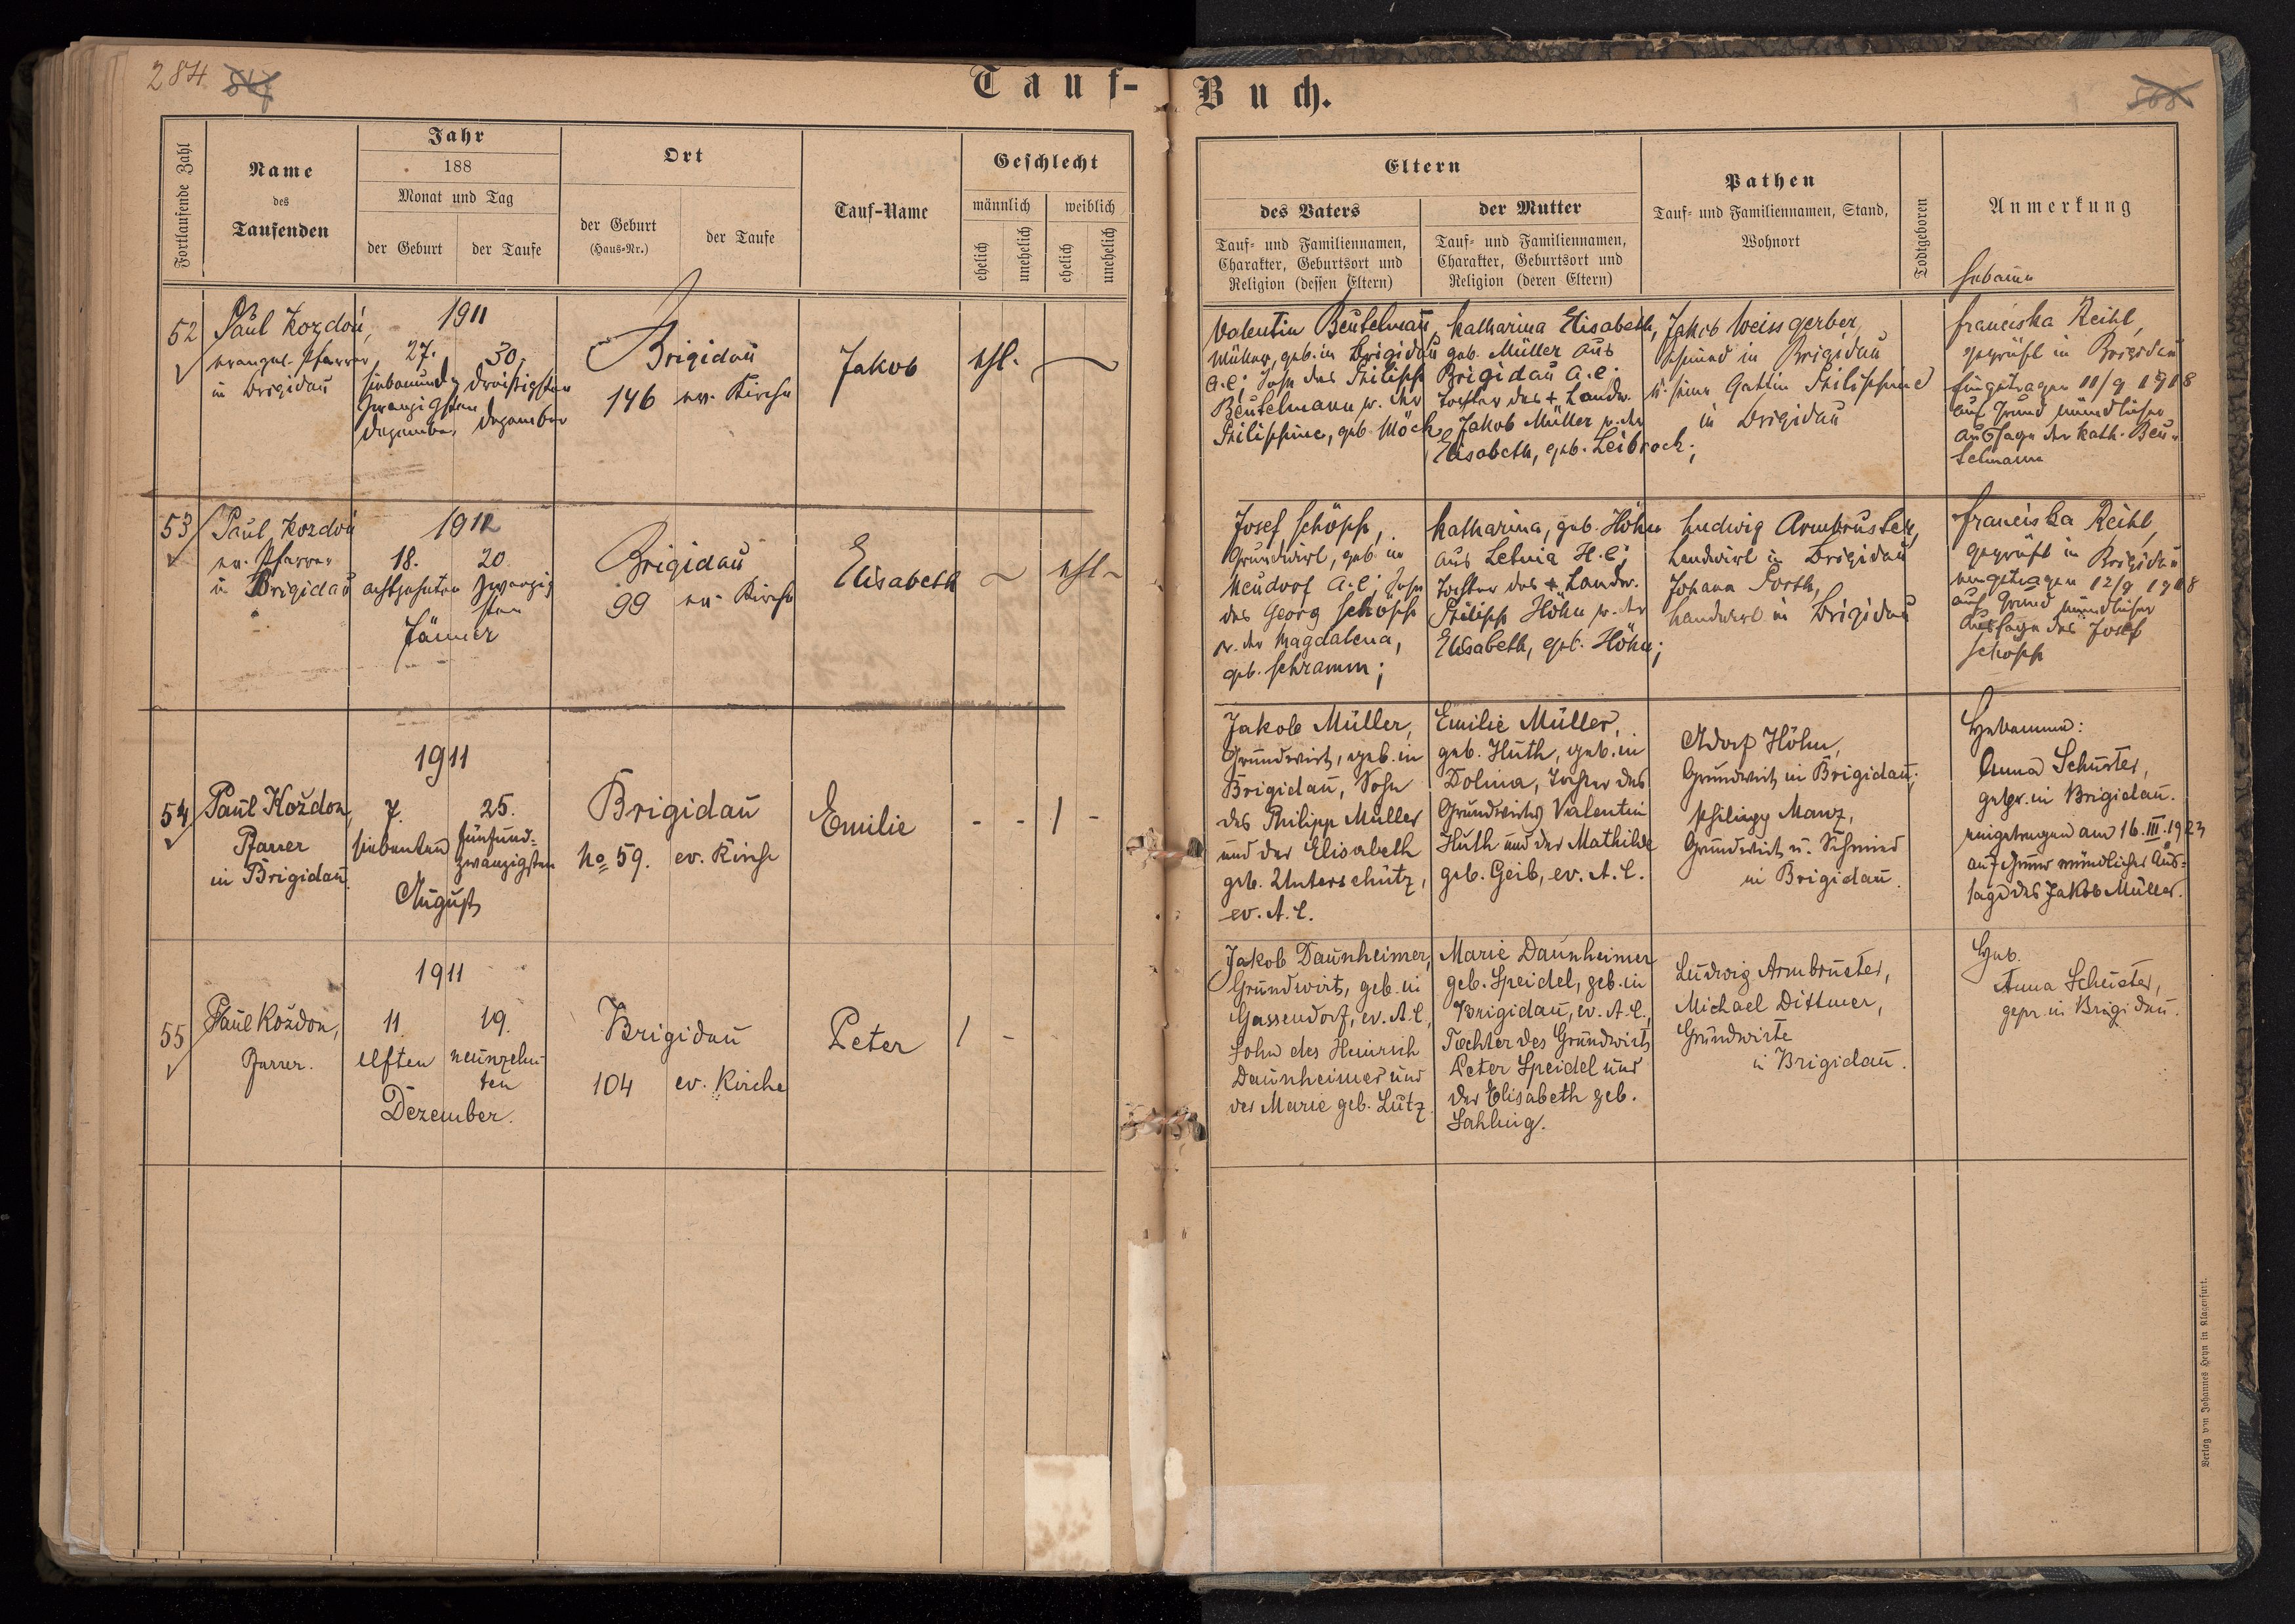 284
Tauf-Buch.
Fortlaufende Zahl
Name
des
Taufenden
Jahr
188
Monat und Tag
der Geburt
der Taufe
Ort
der Geburt
(Haus-Nr.)
der Taufe
Tauf-Name
Geschlecht
männlich
weiblich
ehelich
unehelich
ehelich
unehelich
Eltern
des Vaters
Tauf- und Familiennamen,
Charakter, Geburtsort und
Religion (dessen Eltern)
der Mutter
Tauf- und Familiennamen,
Charakter, Geburtsort und
Religion (deren Eltern)
Pathen
Tauf- und Familiennamen, Stand,
Wohnort
Todtgeboren
Anmerkung
Hebamme
52
Paul Kozdoń,
evangel. Pfarrer
in Brigidau
1911
27.
siebenund-
zwanzigsten
Dezember
30.
dreißigsten
Dezember
Brigidau
146
ev. Kirche
Jakob
ehl.
Valentin Beutelmann,
Müller, geb. in Brigidau
A.C.; Sohn des Philipp
Beutelmann u. der
Philippine, geb. Möck
Katharina Elisabeth,
geb. Müller aus
Brigidau A.C.
Tochter des + Landw.
Jakob Müller u. der
Elisabeth, geb. Leibrock;
Jakob Weissgerber,
Schmied in Brigidau
u. seine Gattin Philippine
in Brigidau
Franciska Reihl,
geprüft in Brigidau
Eingetragen 11/9 1918
auf Grund mündlicher
Aussage der Kath. Beu-
telmann
53
Paul Kozdoń
ev. Pfarrer
in Brigidau
1912
18.
achtzehnten
20
zwanzig
sten
Jänner
Brigidau
99
ev. Kirche
Elisabeth
ehl
Josef Schöpp,
Grundwirt, geb. in
Neudorf A.C.; Sohn
des Georg Schöpp
u. der Magdalena,
geb. Schramm;
Katharina, geb. Höhn
aus Letnia H.C.;
Tochter des + Landw.
Philipp Höhn u. der
Elisabeth, geb. Höhn;
Ludwig Armbruster,
Landwirt in Brigidau
Johann Porth,
Landwirt in Brigidau
Franciska Reihl,
geprüft in Brigidau
eingetragen 12/9 1918
auf Grund mündlicher
Aussage des Josef
Schöpp
54
Paul Koždon,
Pfarrer
in Brigidau.
1911
7.
siebenten
25.
fünfund-
zwanzigsten
August
Brigidau
No 59.
ev. Kirche
Emilie
- - 1 -
Jakob Müller,
Grundwirt, geb. in
Brigidau, Sohn
des Philipp Müller
und der Elisabeth
geb. Unterschütz,
ev. A.C.
Emilie Müller,
geb. Huth, geb. in
Dolina, Tochter des
Grundwirts Valentin
Huth und der Mathilde
geb. Geib, ev. A.C.
Adolf Höhn,
Grundwirt in Brigidau;
Philipp Manz,
Grundwirt u. Schmied
in Brigidau.
Hebamme:
Anna Schuster,
gepr. in Brigidau.
eingetragen am 16.III.1923
auf Grund mündlicher Aus-
sage des Jakob Müller.
55
Paul Koždon,
Pfarrer.
1911
11
elften
19.
neunzehn
ten
Dezember.
Brigidau
104
ev. Kirche
Peter
1 -
Jakob Daunheimer,
Grundwirt, geb. in
Gassendorf, ev. A.C.,
Sohn des Heinrich
Daunheimer und
der Marie geb. Lutz.
Marie Daunheimer
geb. Speidel, geb. in
Brigidau, ev. A.C.,
Tochter des Grundwirts
Peter Speidel und
der Elisabeth geb.
Ludwig Armbruster,
Michael Dittmer,
Grundwirte
in Brigidau.
Heb.
Anna Schuster,
gepr. in Brigidau.
Verlag von Johannes Heyn in Klagenfurt.